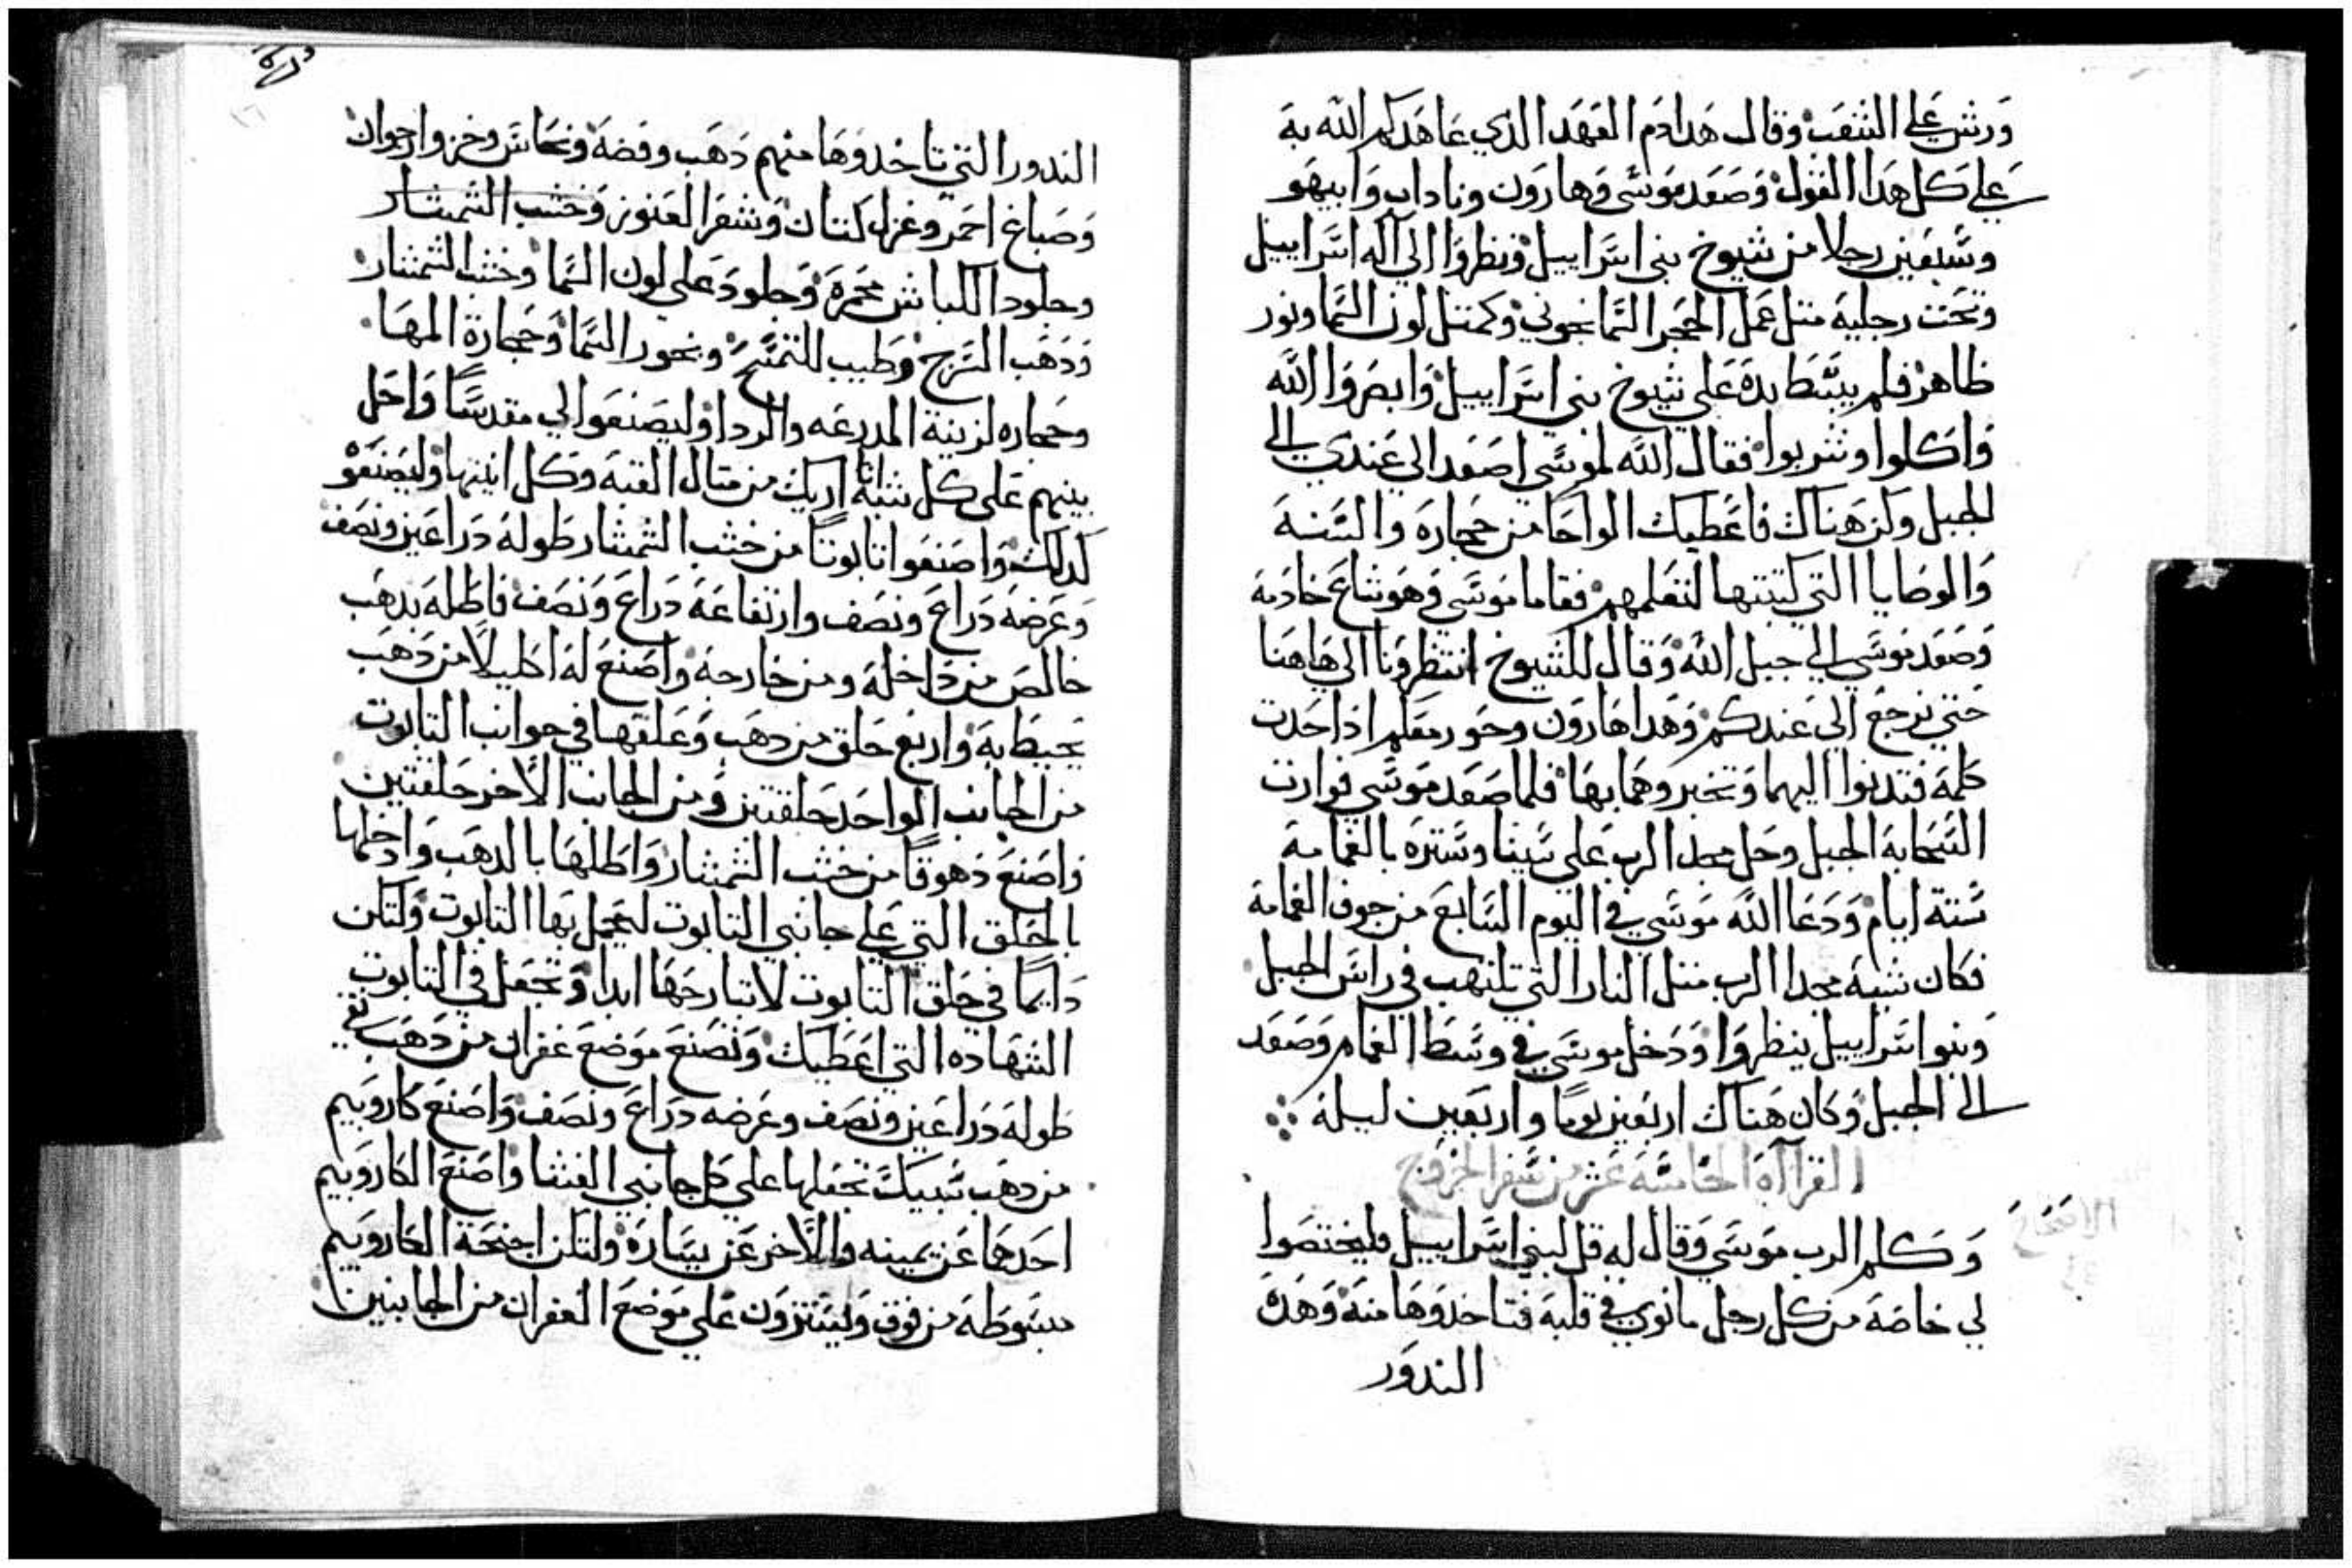 ورش علي الشعب وقال هدا دم العهد الدي عاهدكم الله به
علي كل هدا القول وصعد موسى وهارون وناداب وابيهو
وسبعين رجلا من شيوخ بني اسراييل ونظروا الي اله اسراييل
وتحت رجليه متل عمل الحجر السمانجوني وكمتل لون السما ونور
ظاهر فلم يبسط يده علي شيوخ بني اسراييل وابصروا الله
واكلوا وشربوا فقال الله لموسي اصعد الي عندي الي
الجبل وكن هناك فاعطيك الواحا من حجارة والسنة
والوصايا التي كتبتها لتعلمهم فقاما موسي وهوشاع خادمه
وصعد موسي الي جبل الله وقال للشيوخ انتظرونا الي هاهنا
حتي نرجع الي عندكم وهدا هارون وحور معكم ادا حدت
كلمة فتدنوا اليهما وتخبروهما بها فلما صعد موسي توارت
السحابة الجبل وحل مجد الرب علي سينا وستره بالغمامة
ستة ايام ودعا الله موسي في اليوم السابع من جوف الغمامة
فكان شبه مجد الرب متل النار التي تلتهب في راس الجبل
وبنو اسراييل ينظروا ودخل موسي في وسط الغمام وصعد
الي الجبل وكان هناك اربعين يوما واربعين ليلة
القراآة الخامسة عشر من سفر الخروج
الاصحاح
وكلم الرب موسي وقال له قل لبني اسراييل فليختصوا
لي خاصة من كل رجل ما نوي في قلبه فتاخدوها منه وهده
الندور
الندور التي تاخدوها منهم دهب وفضة ونحاس وخز وارجوان
وصباغ احمر وغزل كتان وشعر العنوز وخشب الشمشار
وجلود الكباش محمرة وجلود علي لون السما وخشب الشمشار
ودهب السرج وطيب للتمسح وبخور السما وحجارة المها
وحجاره لزينة المدرعه والردا وليصنعوا لي مقدسا واحل
بينهم علي كل شبه اريك من متال القبة وكل انيتها وليصنعو
كدلك واصنعوا تابوتا من خشب الشمشار طوله دراعين ونصف
وعرضه دراع ونصف وارتفاعه دراع ونصف فاطله بدهب
خالص من داخله ومن خارجه واصنع له اكليلا من دهب
يحيط به واربع حلق من دهب وعلقها في جوانب التابوت
من الجانب الواحد حلقتين ومن الجانب الاخر حلقتين
واصنع دهوقا من خشب الشمشار واطلها بالدهب وادخلها
بالحلق التي علي جانبي التابوت ليحمل بها التابوت ولتكن
دايما في حلق التابوت لا تبارحها ابدا وتجعل في التابوت
الشهاده التي اعطيك وتصنع موضع غفران من دهب نقي
طوله دراعين ونصف وعرضه دراع ونصف واصنع كاروبيم
من دهب سبيك تجعلها علي كل جانبي الغشا واصنع الكاروبيم
احدهما عن يمينه والاخر عن يساره ولتكن اجنحة الكاروبيم
مبسوطه من فوق وليسترون علي موضع الغفران من الجانبين